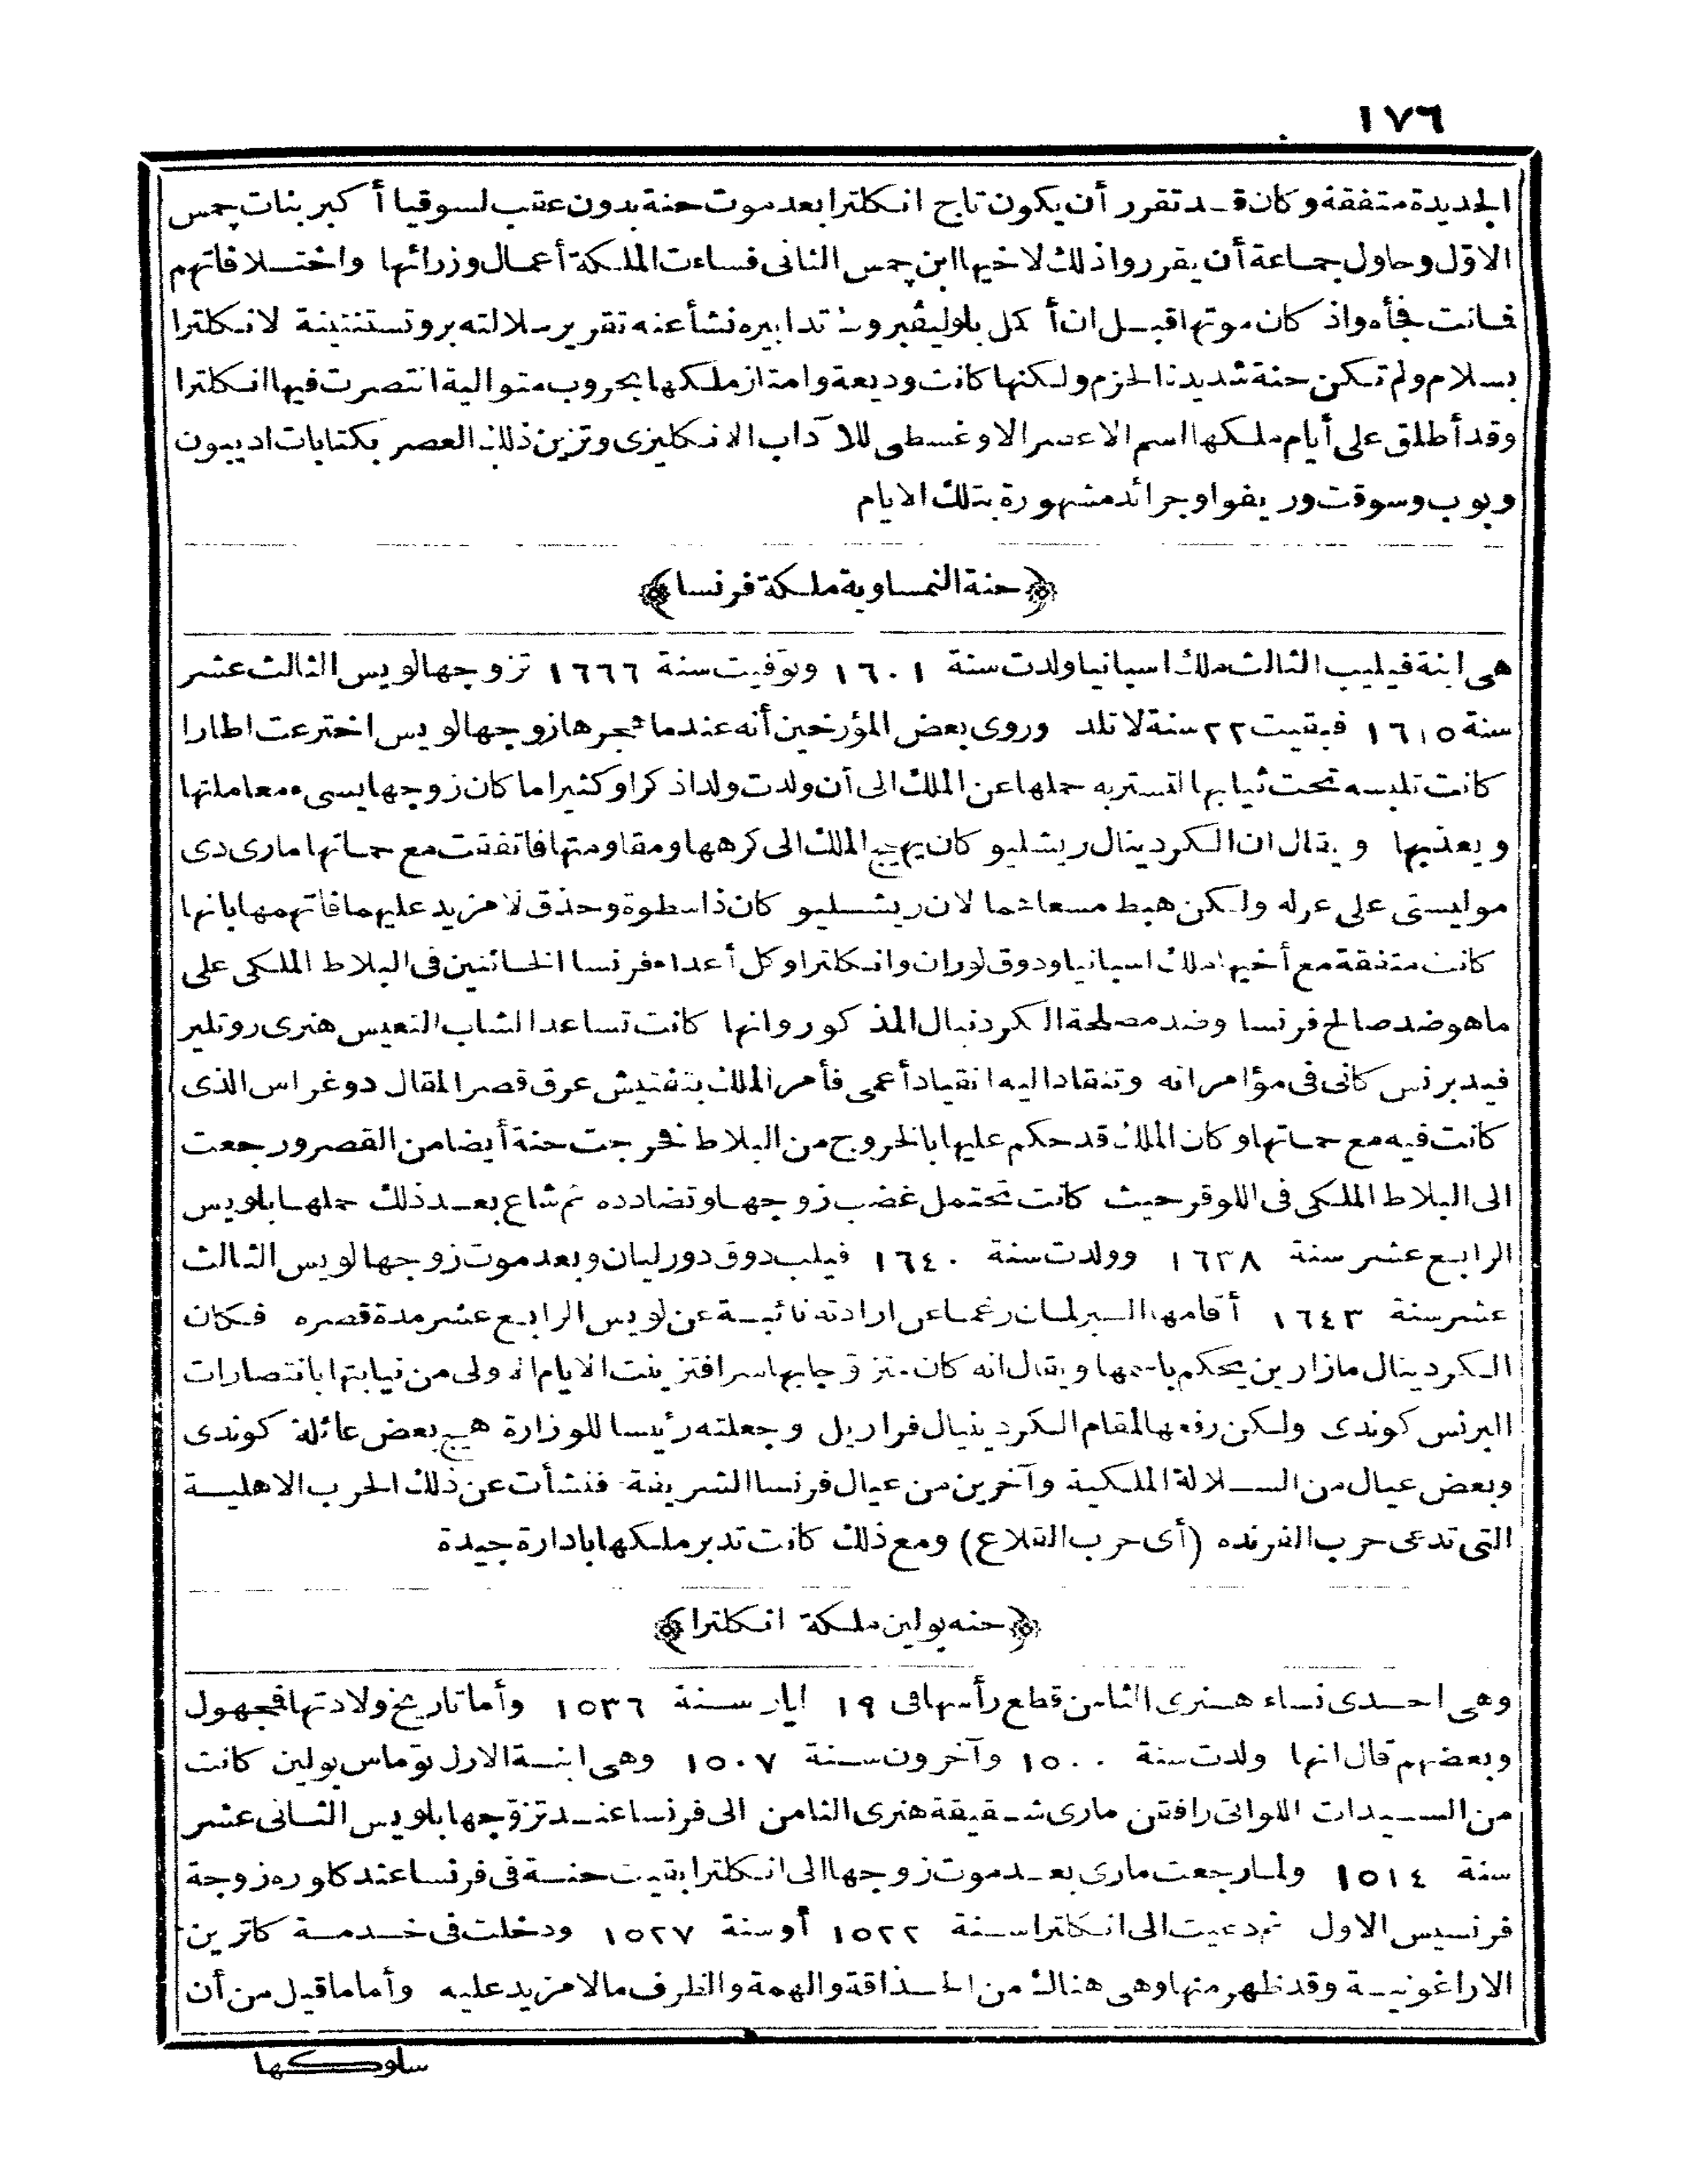 ١٧٦
الجديدة متفقة وكان قد تقرر أن يكون تاج انكلترا بعد موت حنة بدون عقب لسوقيا أكبر بنات چمس
الاوّل وحاول جماعة أن يقرروا ذلك لاخيها ابن چمس الثانى فساءت الملكة أعمال وزرائها واختلافاتهم
فماتت فجأه واذ كان موتها قبل ان أكمل بلوليڤبروك تدابيره نشأ عنه تقرير سلالته بروتستنتينة لانكلترا
بسلام ولم تكن حنة شديدة الحزم ولكنها كانت وديعة وامتاز ملكها بحروب متوالية انتصرت فيها انكلترا
وقد أطلق على أيام ملكها اسم الاعصر الاوغسطى للآداب الانكليزى وتزين ذلك العصر بكتابات اديبون
وبوب وسوقت وريفوا وجرائد مشهورة بتلك الايام
﴿حنة النمساوية ملكة فرنسا﴾
هى ابنة فيليب الثالث ملك اسبانيا ولدت سنة ١٦٠١ وتوفيت سنة ١٦٦٦ تزوجها لويس الثالث عشر
سنة ١٦١٥ فبقيت ٢٢ سنة لا تلد وروى بعض المؤرخين أنه عندما هجرها زوجها لويس اخترعت اطارا
كانت تلبسه تحت ثيابها لتستر به حملها عن الملك الى أن ولدت ولدا ذكرا وكثيرا ما كان زوجها يسىء معاملتها
ويعذبها ويقال ان الكردينال ريشليو كان يهيج الملك الى كرهها ومقاومتها فاتفقت مع حماتها مارى دى
موليستى على عزله ولكن هبط مسعاهما لان ريشليو كان ذا سطوة وحذق لا مزيد عليهما فاتهمها بانها
كانت متفقة مع أخيها ملك اسبانيا ودوق لوران وانكلترا وكل أعداء فرنسا الخائنين فى البلاط الملكى على
ما هو ضد صالح فرنسا وضد مصلحة الكردنبال المذكور وانها كانت تساعد الشاب التعيس هنرى روتلير
فيد برنس كانى فى مؤامراته وتنقاد اليه انقياد أعمى فأمر الملك بتفتيش عرق قصر المقال دوغراس الذى
كانت فيه مع حماتها وكان الملك قد حكم عليها بالخروج من البلاط فخرجت حنة أيضا من القصر ورجعت
الى البلاط الملكى فى اللوقر حيث كانت تحتمل غضب زوجها وتضادده ثم شاع بعد ذلك حملها بلويس
الرابع عشر سنة ١٦٣٨ وولدت سنة ١٦٤٠ فيلب دوق دورليان وبعد موت زوجها لويس الثالث
عشر سنة ١٦٤٣ أقامها البرلمان رغما عن ارادته نائبة عن لويس الرابع عشر مدة قصره فكان
الكردينال مازارين يحكم باسمها ويقال انه كان متزوّجا بها سرا فتزينت الايام الاولى من نيابتها بانتصارات
البرنس كوندى ولكن رفعها لمقام الكردينيال فراريل وجعلته رئيسا للوزارة هيج بعض عائلة كوندى
وبعض عيال من السلالة الملكية وآخرين من عيال فرنسا الشريفة فنشأت عن ذلك الحرب الاهلية
التى تدعى حرب الفرنده (أى حرب القلاع) ومع ذلك كانت تدبر ملكها بادارة جيدة
﴿حنه بولين ملكة انكلترا﴾
وهى احدى نساء هنرى الثامن قطع رأسها فى ١٩ ايار سنة ١٥٣٦ وأما تاريخ ولادتها فمجهول
وبعضهم قال انها ولدت سنة ١٥٠٠ وآخرون سنة ١٥٠٧ وهى ابنة الارل توماس بولين كانت
من السيدات اللواتى رافقن مارى شقيقة هنرى الثامن الى فرنسا عند تزوّجها بلويس الثانى عشر
سنة ١٥١٤ ولما رجعت مارى بعد موت زوجها الى انكلترا بقيت حنة فى فرنسا عند كاوره زوجة
فرنسيس الاول ثم دعيت الى انكلترا سنة ١٥٢٢ أو سنة ١٥٢٧ ودخلت فى خدمة كاترين
الاراغونية وقد ظهر منها وهى هناك من الحذاقة والهمة والظرف مالا مزيد عليه وأما ما قيل من أن
سلوكها